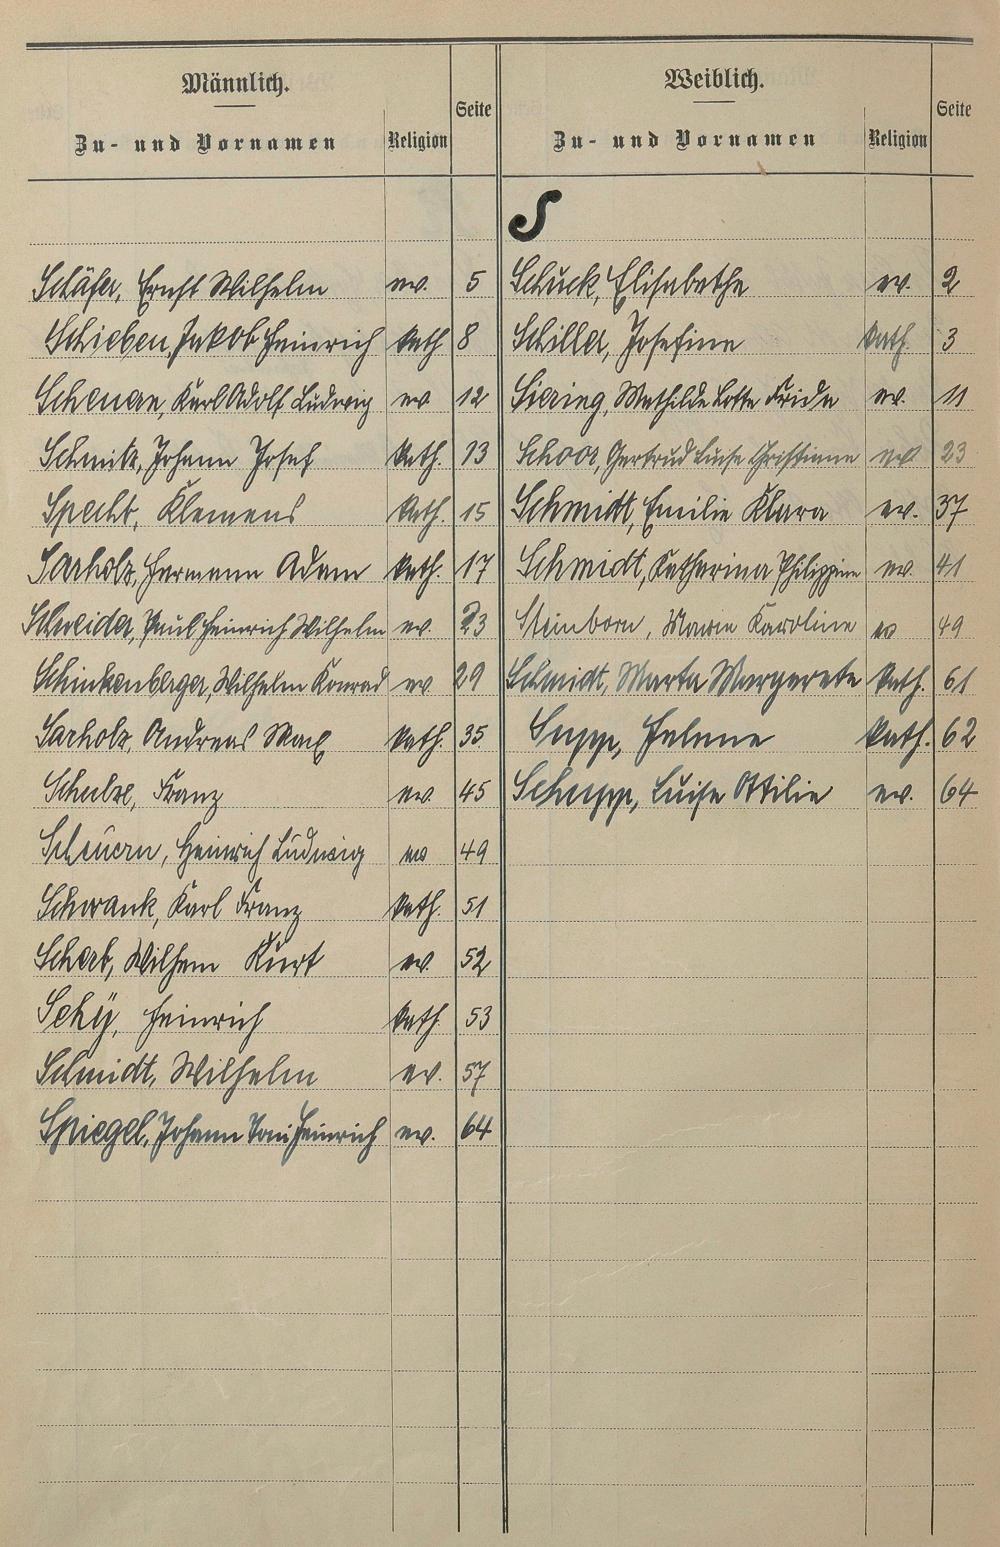 Männlich.
Zu- und Vornamen Religion Seite
Weiblich.
Zu- und Vornamen Religion Seite
S
Schäfer, Ernst Wilhelm ev. 5
Schieben, Jakob Heinrich kath 8
Karl Adolf Ludwig ev 12
Schmitz, Johann Josef kath. 13
Specht, Klemens kath. 15
Sarholz, Hermann Adam kath. 17
Schneider, Paul Heinrich Wilhelm ev. 23
Schinkenberger, Wilhelm Konrad ev. 29
Sarholz, Andreas Max kath. 35
Schulze, Franz ev. 45
Scheuern, Heinrich Ludwig ev 49
Schwank, Karl Franz kath. 51
Scherb, Wilhem Kurt ev. 52
Schÿ, Heinrich kath 53
Schmidt, Wilhelm ev. 57
Spiegel, Johann Toni Heinrich ev. 64
Schuck, Elisabethe ev. 2
Schiller, Josefine kath. 3
Siering, Mathilde Lotte Frida ev. 11
Schoor, Gertrud Luise Christiane ev 23
Schmidt, Emilie Klara ev. 37
Schmidt, Katharina Philippine ev. 41
Steinborn, Marie Karoline ev 49
Schmidt, Marta Margarete kath. 61
Supp, Helene kath. 62
Schupp, Luise Ottilie ev. 64